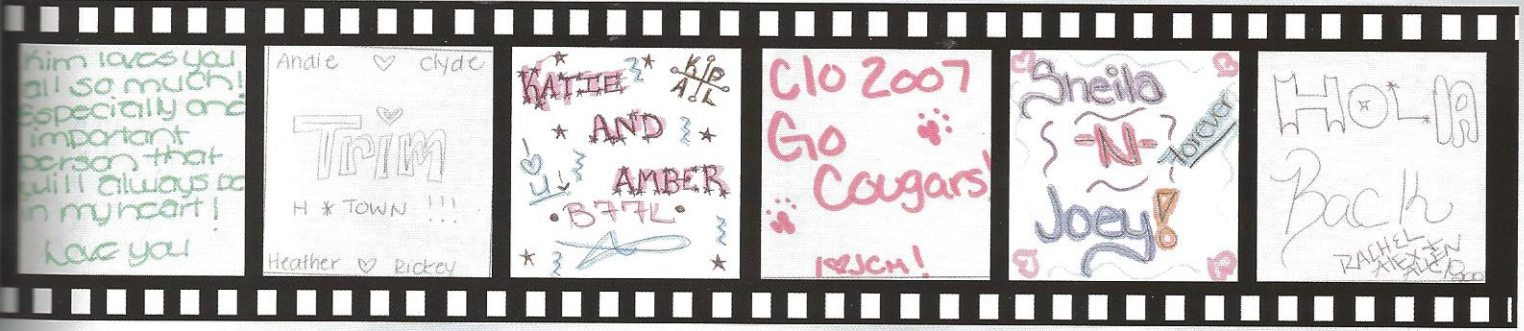 Kim loves you
all so much!
Especially one
important
person that
will always be
in my heart!
Love you
Andie ♡ Clyde
Trim
H * TOWN !!!
Heather ♡ Rickey
KATIE
AND
AMBER
B77L
C/O 2007
Go
Cougars!
I ♡ JCM!
Sheila
-N-
Joey!
forever
HOLLA
Back
RACHEL